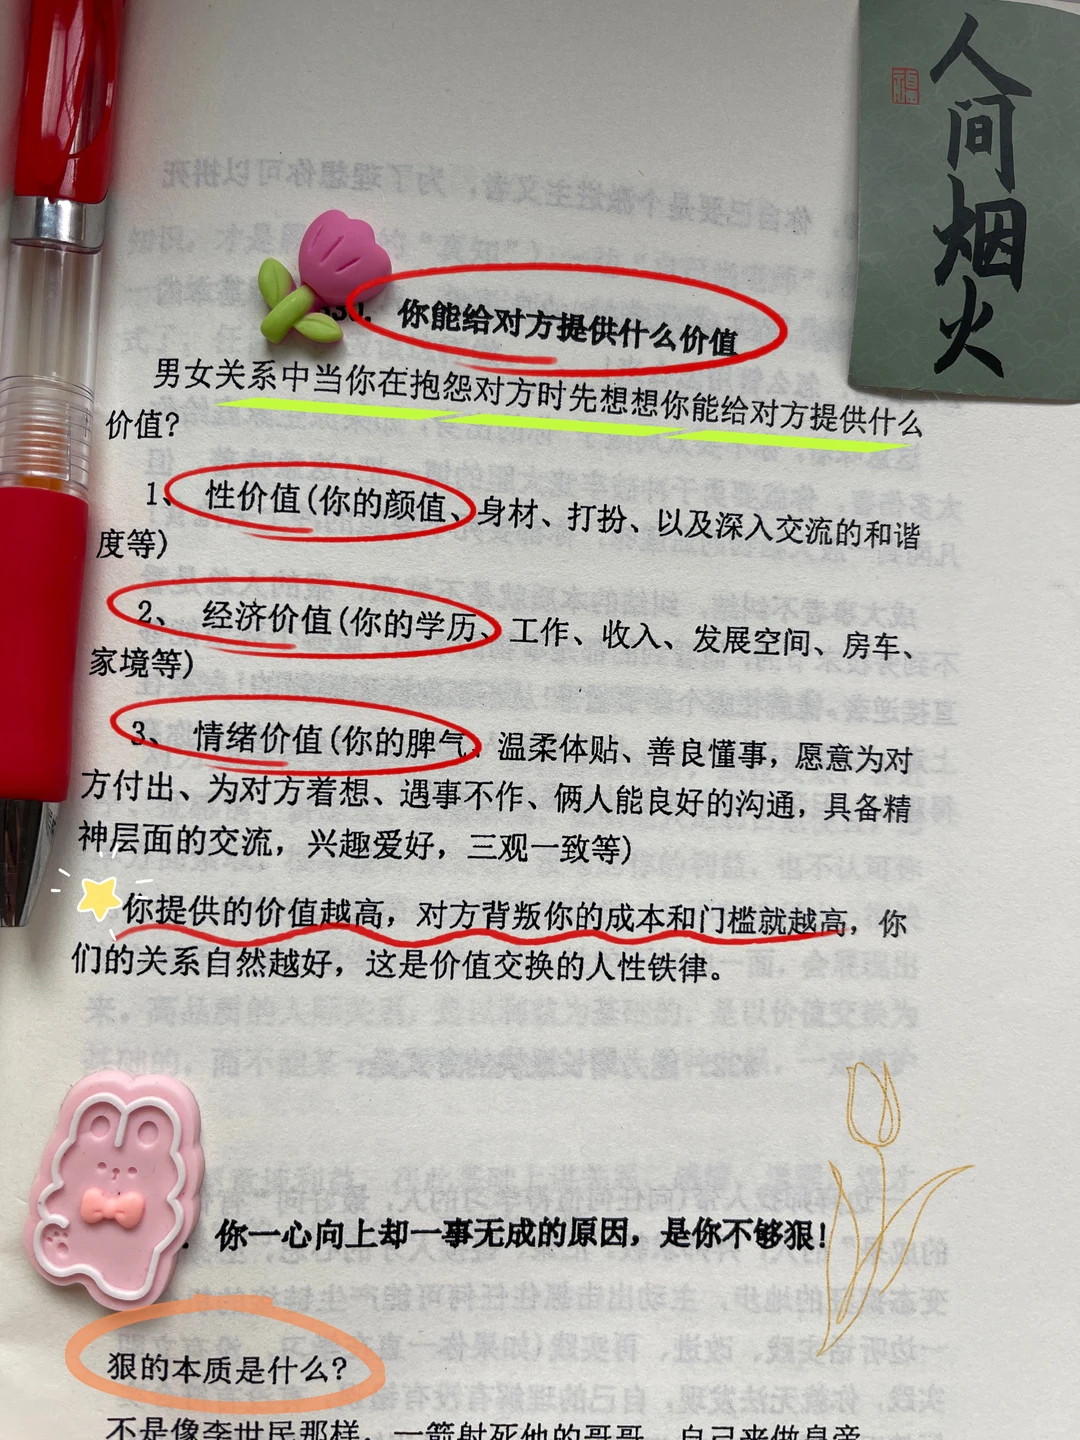 人间烟火
你能给对方提供什么价值
男女关系中当你在抱怨对方时先想想你能给对方提供什么
价值?
1、 性价值(你的颜值、身材、打扮、以及深入交流的和谐
度等)
2、 经济价值(你的学历、工作、收入、发展空间、房车、
家境等)
3、 情绪价值(你的脾气、温柔体贴、善良懂事，愿意为对
方付出、为对方着想、遇事不作、俩人能良好的沟通，具备精
神层面的交流，兴趣爱好，三观一致等)
你提供的价值越高，对方背叛你的成本和门槛就越高，你
们的关系自然越好，这是价值交换的人性铁律。
你一心向上却一事无成的原因，是你不够狠!
狠的本质是什么?
不是像李世民那样，一箭射死他的哥哥，自己来做皇帝